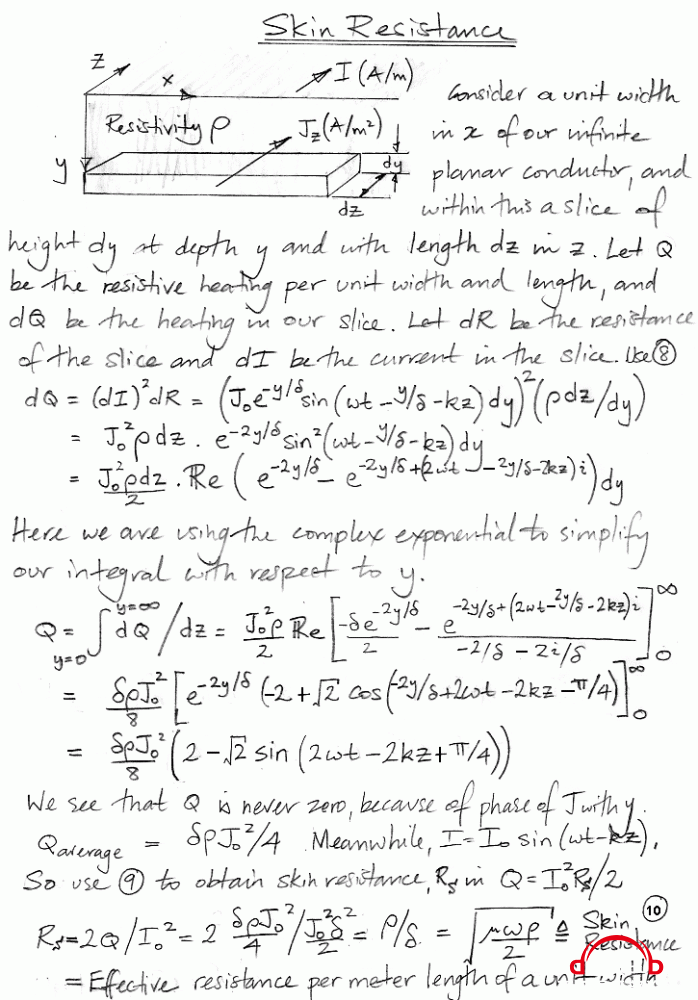 Skin Resistance
z
x
I (A/m)
Resistivity ρ
J_z (A/m²)
y
dy
dz
Consider a unit width
in x of our infinite
planar conductor, and
within this a slice of
height dy at depth y and with length dz in z. Let Q
be the resistive heating per unit width and length, and
dQ be the heating in our slice. Let dR be the resistance
of the slice and dI be the current in the slice. Use ⑧
dQ = (dI)²dR = (J₀e^{-y/δ}sin(ωt - y/δ - kz)dy)²(ρdz/dy)
= J₀²ρdz . e^{-2y/δ}sin²(ωt - y/δ - kz)dy
= J₀²ρdz/2 . Re(e^{-2y/δ} - e^{-2y/δ+(2ωt - 2y/δ - 2kz)i})dy
Here we are using the complex exponential to simplify
our integral with respect to y.
Q = ∫_{y=0}^{y=∞} dQ/dz = J₀²ρ/2 Re[-δe^{-2y/δ}/2 - e^{-2y/δ+(2ωt-2y/δ-2kz)i}/(-2/δ - 2i/δ)]₀^∞
= δρJ₀²/8 [e^{-2y/δ}(-2+√2 cos(-2y/δ+2ωt-2kz-π/4)]₀^∞
= δρJ₀²/8 (2-√2 sin(2ωt-2kz+π/4))
We see that Q is never zero, because of phase of J with y.
Q_average = δρJ₀²/4 Meanwhile, I=I₀ sin(ωt-kz),
So use ⑨ to obtain skin resistance, R_s in Q = I₀²R_s/2
R_s=2Q/I₀² = 2 δρJ₀²/4 / J₀²δ²/2 = ρ/δ = √(μωρ/2) ≜ Skin Resistance ⑩
= Effective resistance per meter length of a unit width